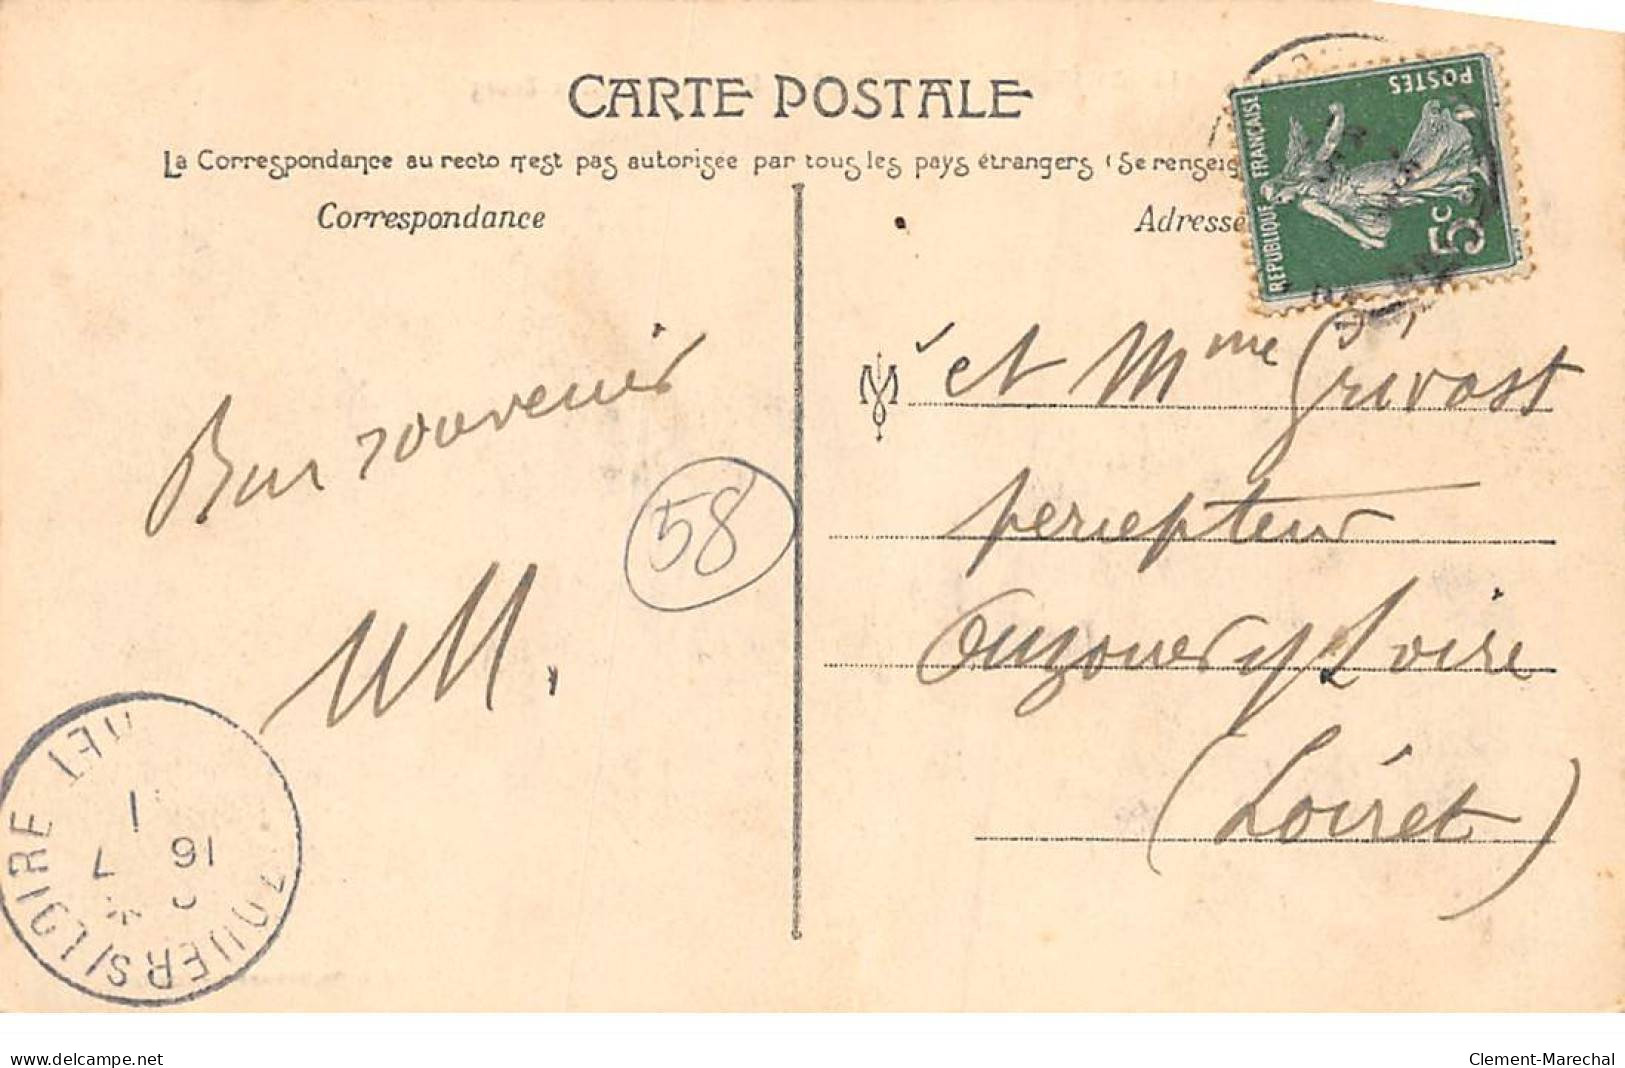 CARTE POSTALE
La Correspondance au recto n'est pas autorisée par tous les pays étrangers (Se renseig
Correspondance
Adresse
RÉPUBLIQUE FRANÇAISE
POSTES
5c
Bon souvenir
58
M et Mme Grivost
percepteur
Ouzouer s/ Loire
(Loiret)
LOIRET
OUZOUER S/ LOIRE
delcampe.net
Clement-Marechal